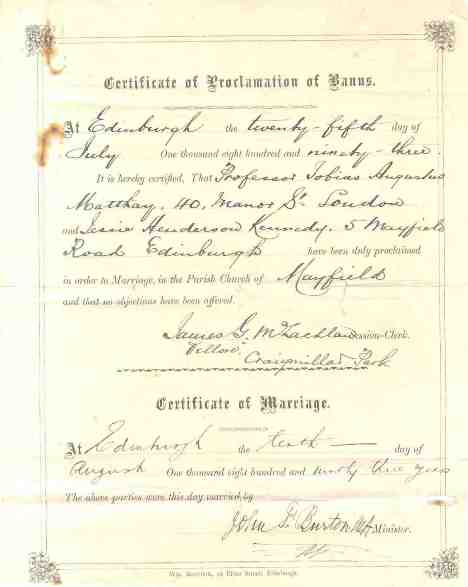 Certificate of Proclamation of Banns.
At Edinburgh the twenty-fifth day of
July One thousand eight hundred and ninety-three.
It is hereby certified, That Professor Tobias Augustus
Matthay, 40, Manor St London
and Jessie Henderson Kennedy, 5 Mayfield
Road Edinburgh have been duly proclaimed
in order to Marriage, in the Parish Church of Mayfield
and that no objections have been offered.
James G. McLachlan Session-Clerk.
Craigmillar Park
Certificate of Marriage.
At Edinburgh the tenth day of
August One thousand eight hundred and ninety three years
The above parties were this day married, by
John Burton MA Minister.
Street, Edinburgh.